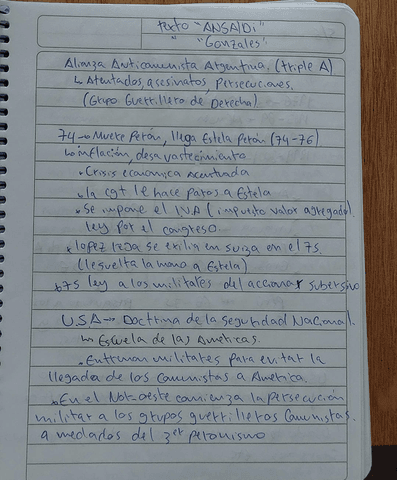 Texto "ANSALDI"
" "Gonzales"
Alianza Anticomunista Argentina, (triple A)
↳ Atentados, asesinatos, persecuciones.
(Grupo Guerrillero de Derecha)
74 → Muere Perón, llega Estela Perón (74-76)
↳ inflación, desavastecimiento
• Crisis económica acentuada
• la cgt le hace paros a Estela
• Se impone el IVA (impuesto valor agregado).
ley por el congreso.
• lopez rega se exilia en suiza en el 75.
(le suelta la mano a Estela)
• 75 ley a los militares del accionar subersivo
U.S.A → Doctrina de la seguridad Nacional.
↳ Escuela de las Américas.
• Entrenan militares para evitar la
llegada de los comunistas a America.
• En el Nor-oeste comienza la persecución
militar a los grupos guerrilleros comunistas.
a mediados del 3er peronismo